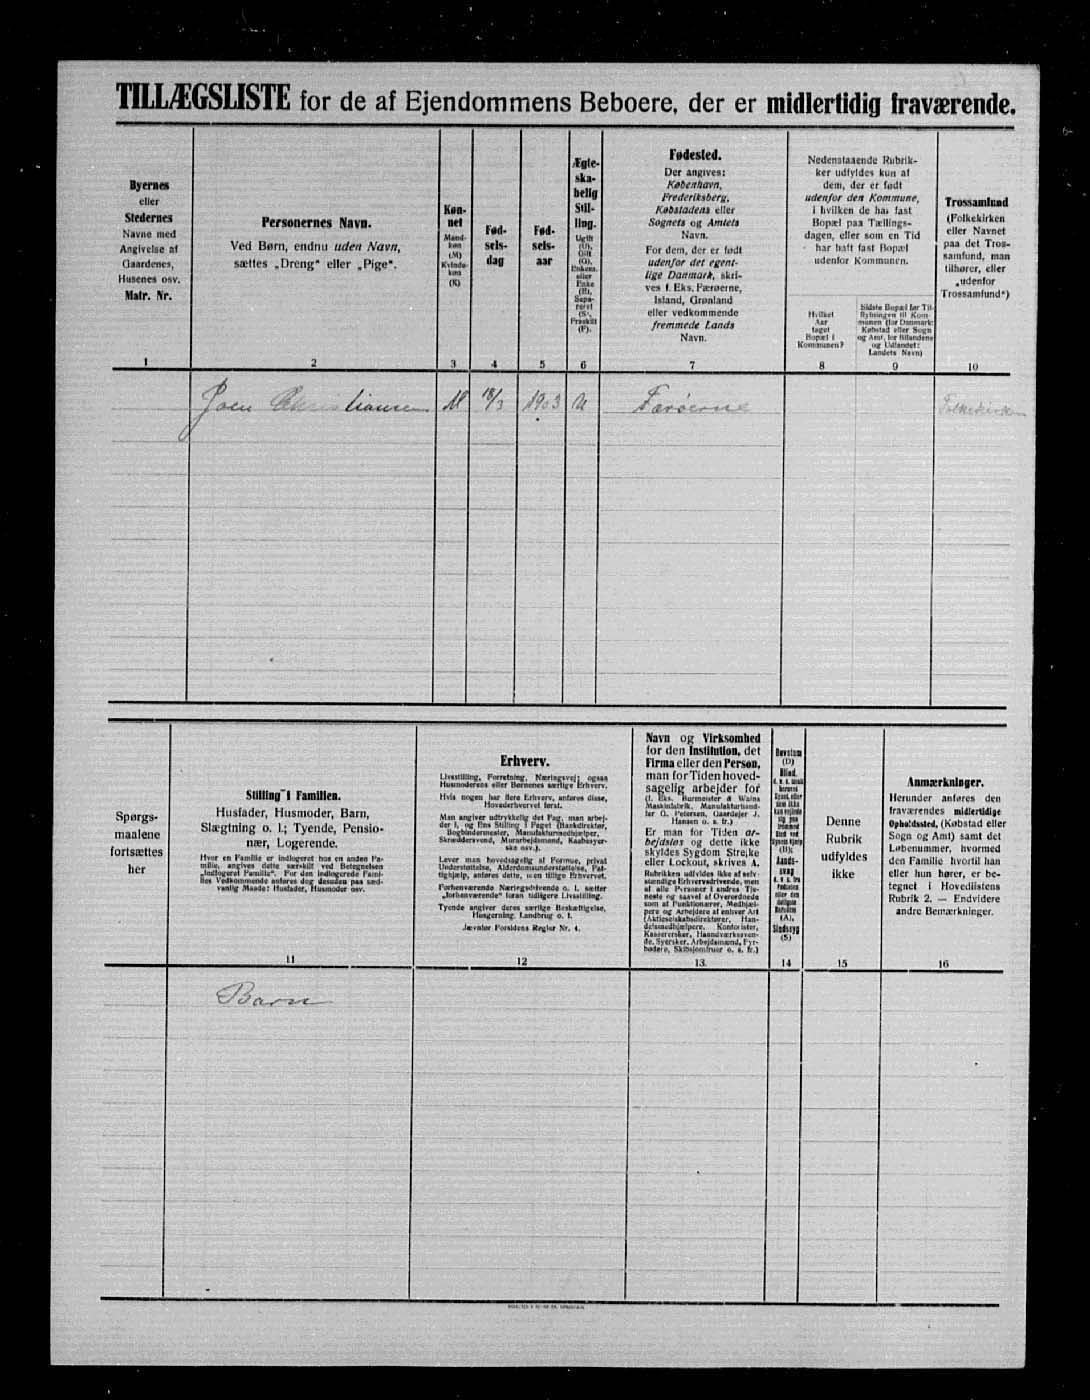 TILLÆGSLISTE for de af Ejendommens Beboere, der er midlertidig fraværende.
Byernes
eller
Stedernes
Navne med
Angivelse af
Gaardenes,
Husenes osv.
Matr. Nr.
1
Personernes Navn.
Ved Børn, endnu uden Navn,
sættes „Dreng“ eller „Pige“.
2
Køn-
net
Mand-
køn
(M)
Kvinde-
køn
(K)
3
Fød-
sels-
dag
4
Fød-
sels-
aar
5
Ægte-
ska-
belig
Stil-
ling.
Ugift
(U),
Gift
(G),
Enkem.
eller
Enke
(E),
Sepa-
reret
(S),
Fraskilt
(F).
6
Fødested.
Der angives:
København,
Frederiksberg,
Købstadens eller
Sognets og Amtets
Navn.
For dem, der er født
udenfor det egent-
lige Danmark, skri-
ves f. Eks. Færøerne,
Island, Grønland
eller vedkommende
fremmede Lands
Navn.
7
Nedenstaaende Rubrik-
ker udfyldes kun af
dem, der er født
udenfor den Kommune,
i hvilken de har fast
Bopæl paa Tællings-
dagen, eller som en Tid
har haft fast Bopæl
udenfor Kommunen.
Hvilket
Aar
taget
Bopæl i
Kommunen?
8
Sidste Bopæl før Til-
flytningen til Kom-
munen (for Danmark:
Købstad eller Sogn
og Amt, for Bilandene
og Udlandet:
Landets Navn)
9
Trossamfund
(Folkekirken
eller Navnet
paa det Tros-
samfund, man
tilhører, eller
„udenfor
Trossamfund“)
10
Joen Christiansen M 18/3 1903 U Færøerne Folkekirken
Spørgs-
maalene
fortsættes
her
Stilling i Familien.
Husfader, Husmoder, Barn,
Slægtning o. l.; Tyende, Pensio-
nær, Logerende.
Hvor en Familie er indlogeret hos en anden Fa-
milie, angives dette særskilt ved Betegnelsen
„indlogeret Familie“. For den indlogerede Fami-
lies Vedkommende anføres dog desuden paa sæd-
vanlig Maade: Husfader, Husmoder osv.
11
Erhverv.
Livsstilling, Forretning, Næringsvej; ogsaa
Husmoderens eller Børnenes særlige Erhverv.
Hvis nogen har flere Erhverv, anføres disse,
Hovederhvervet først.
Man angiver udtrykkelig det Fag, man arbej-
der i, og Ens Stilling i Faget (Bankdirektør,
Bogbindermester, Manufakturmedhjælper,
Skræddersvend, Murarbejdsmand, Kaabesyer-
ske osv.).
Lever man hovedsagelig af Formue, privat
Understøttelse, Alderdomsunderstøttelse, Fat-
tighjælp, anføres dette, uden tillige Erhvervet.
Forhenværende Næringsdrivende o. l. sætter
„forhenværende“ foran tidligere Livsstilling.
Tyende angiver deres særlige Beskæftigelse,
Husgerning, Landbrug o. l.
Jævnfør Forsidens Regler Nr. 4.
12
Navn og Virksomhed
for den Institution, det
Firma eller den Person,
man for Tiden hoved-
sagelig arbejder for
(f. Eks. Burmeister & Wains
Maskinfabrik, Manufakturhand-
ler O. Petersen, Gaardejer J.
Hansen o. s. fr.)
Er man for Tiden ar-
bejdsløs og dette ikke
skyldes Sygdom Strejke
eller Lockout, skrives A.
Rubrikken udfyldes ikke af selv-
stændige Erhvervsdrivende, men
af alle Personer i andres Tje-
neste og saavel af Overordnede
som af Funktionærer, Medhjæl-
pere og Arbejdere af enhver Art
(Aktieselskabsdirektører, Han-
delsmedhjælpere, Kontorister,
Kassererskér, Haandværkssven-
de, Syersker, Arbejdsmænd, Fyr-
bødere, Skibsjomfruer o. s. fr.)
13.
Døvstum
(D)
Blind,
14
Denne
Rubrik
udfyldes
ikke
15
Anmærkninger.
Herunder anføres den
fraværendes midlertidige
Opholdssted, (Købstad eller
Sogn og Amt) samt det
Løbenummer, hvormed
den Familie hvortil han
eller hun hører, er be-
tegnet i Hovedlistens
Rubrik 2. — Endvidere
andre Bemærkninger.
16
Barn